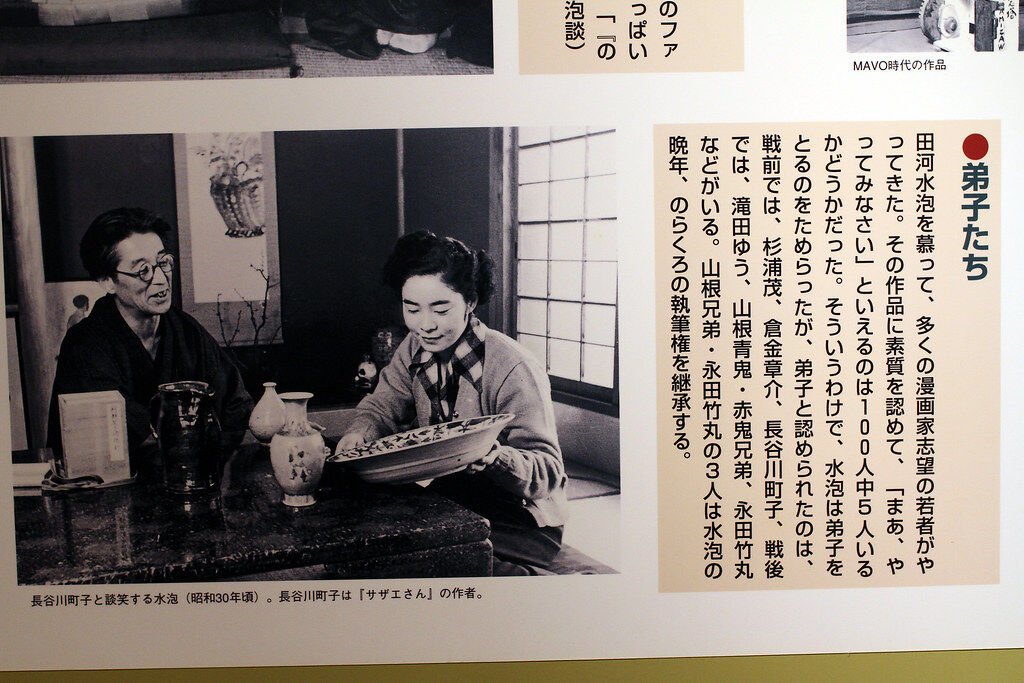 のファ
っぱい
「『の
泡談）
MAVO時代の作品
●弟子たち
田河水泡を慕って、多くの漫画家志望の若者がや
ってきた。その作品に素質を認めて、「まあ、や
ってみなさい」といえるのは100人中5人いる
かどうかだった。そういうわけで、水泡は弟子を
とるのをためらったが、弟子と認められたのは、
戦前では、杉浦茂、倉金章介、長谷川町子、戦後
では、滝田ゆう、山根青鬼・赤鬼兄弟、永田竹丸
などがいる。山根兄弟・永田竹丸の3人は水泡の
晩年、のらくろの執筆権を継承する。
長谷川町子と談笑する水泡（昭和30年頃）。長谷川町子は『サザエさん』の作者。